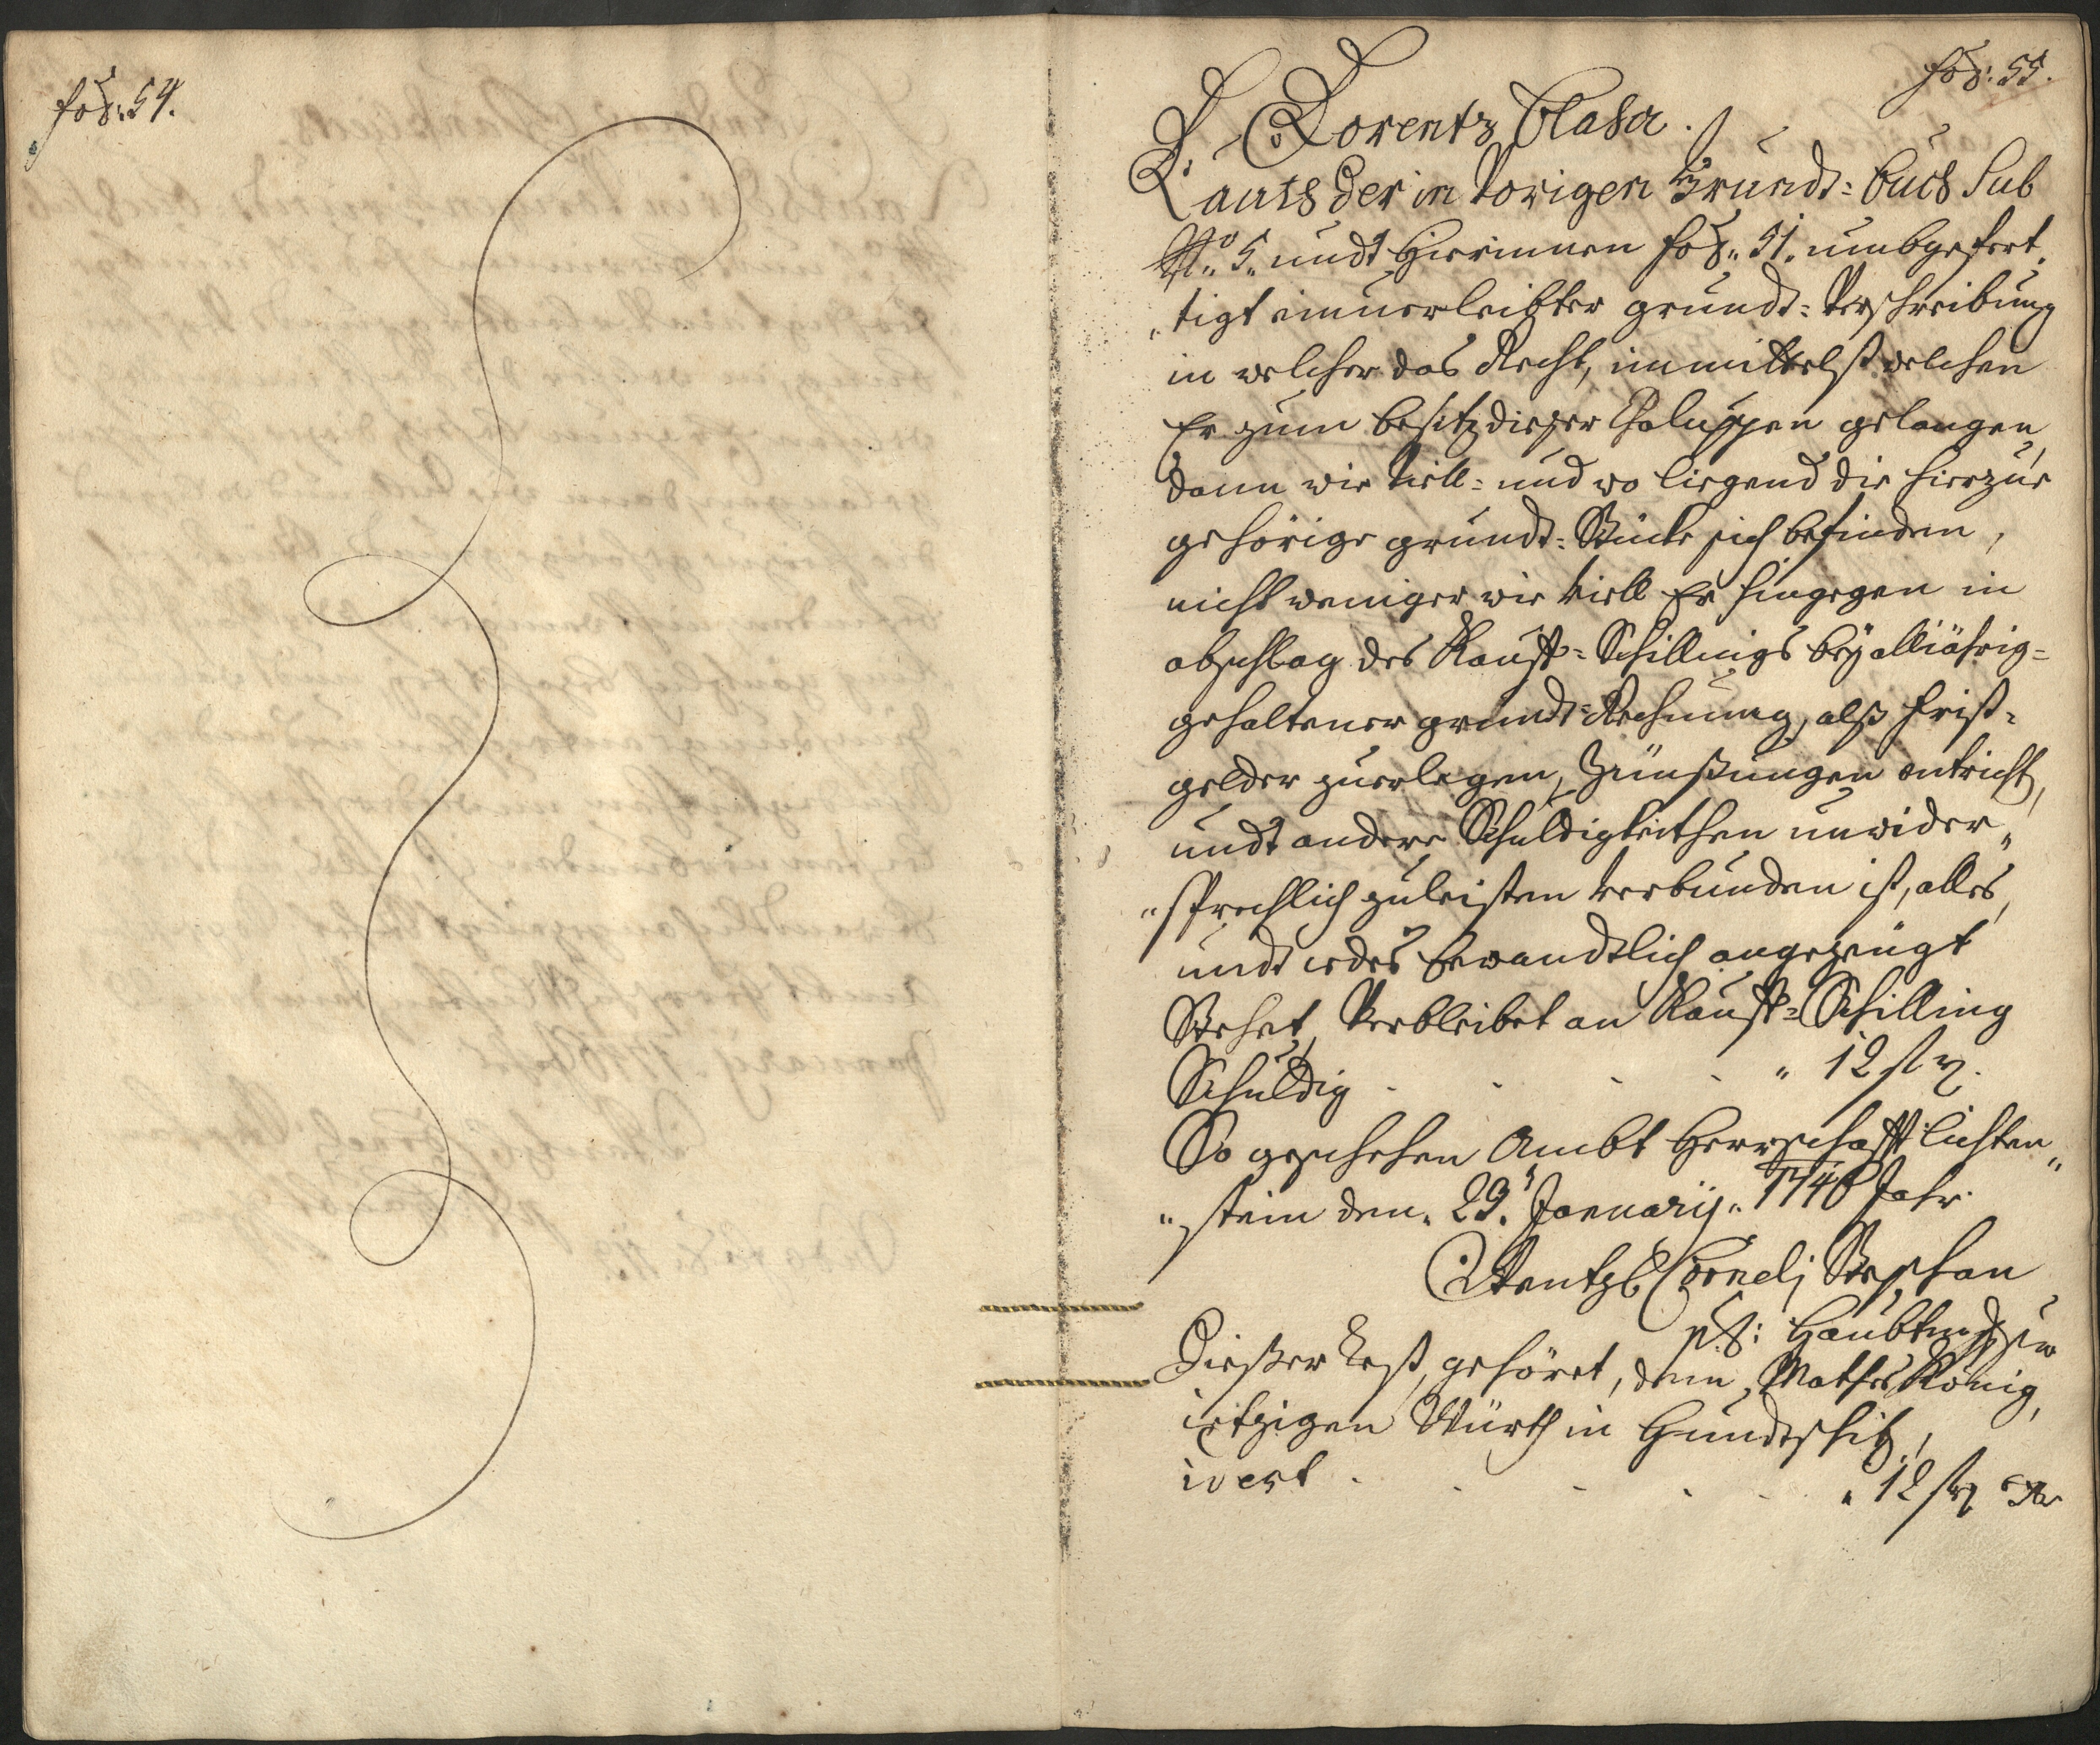 fol: 54.
fol: 55.
Lorentz Blaha.
Lauth der in Vorigen Grundt=buch Sub
No 5. undt hierinnen fol. 51. umbgefert,
„tigt einuerleibter grundt=Verschreibung
in welcher das Recht, immittelst welchen
Er zum besitz dießer Chaluppen gelangen,
dann wie Viell= und wo liegend die hierzue
gehörige grundt=Stücke sich befinden,
nicht weniger wie viell Er hingegen in
abschlag des Kauff=Schillings bey alljährig=
gehaltener grundt=Rechnung, alß frist=
gelder zuerlegen, Zünßungen entricht,
undt andere Schuldigkeithen unwider„
„sprechlich zuleisten verbunden ist, alles,
undt iedes bewandtlich angezeügt
Stehet, Verbleibet an Kauff=Schilling
Schuldig . . . . „ 12 ß
So geschehen Ambt Herrschafft lichten„
„stein den. 23. Januarij. 1746 Jahr.
Wentzl Cornelj Stephan
Haubtm
Dießer Rest, gehöret, dem, Mathes König,
ietzigen Würth in Hundtschitz,
wert . . . . . „ 12 ß